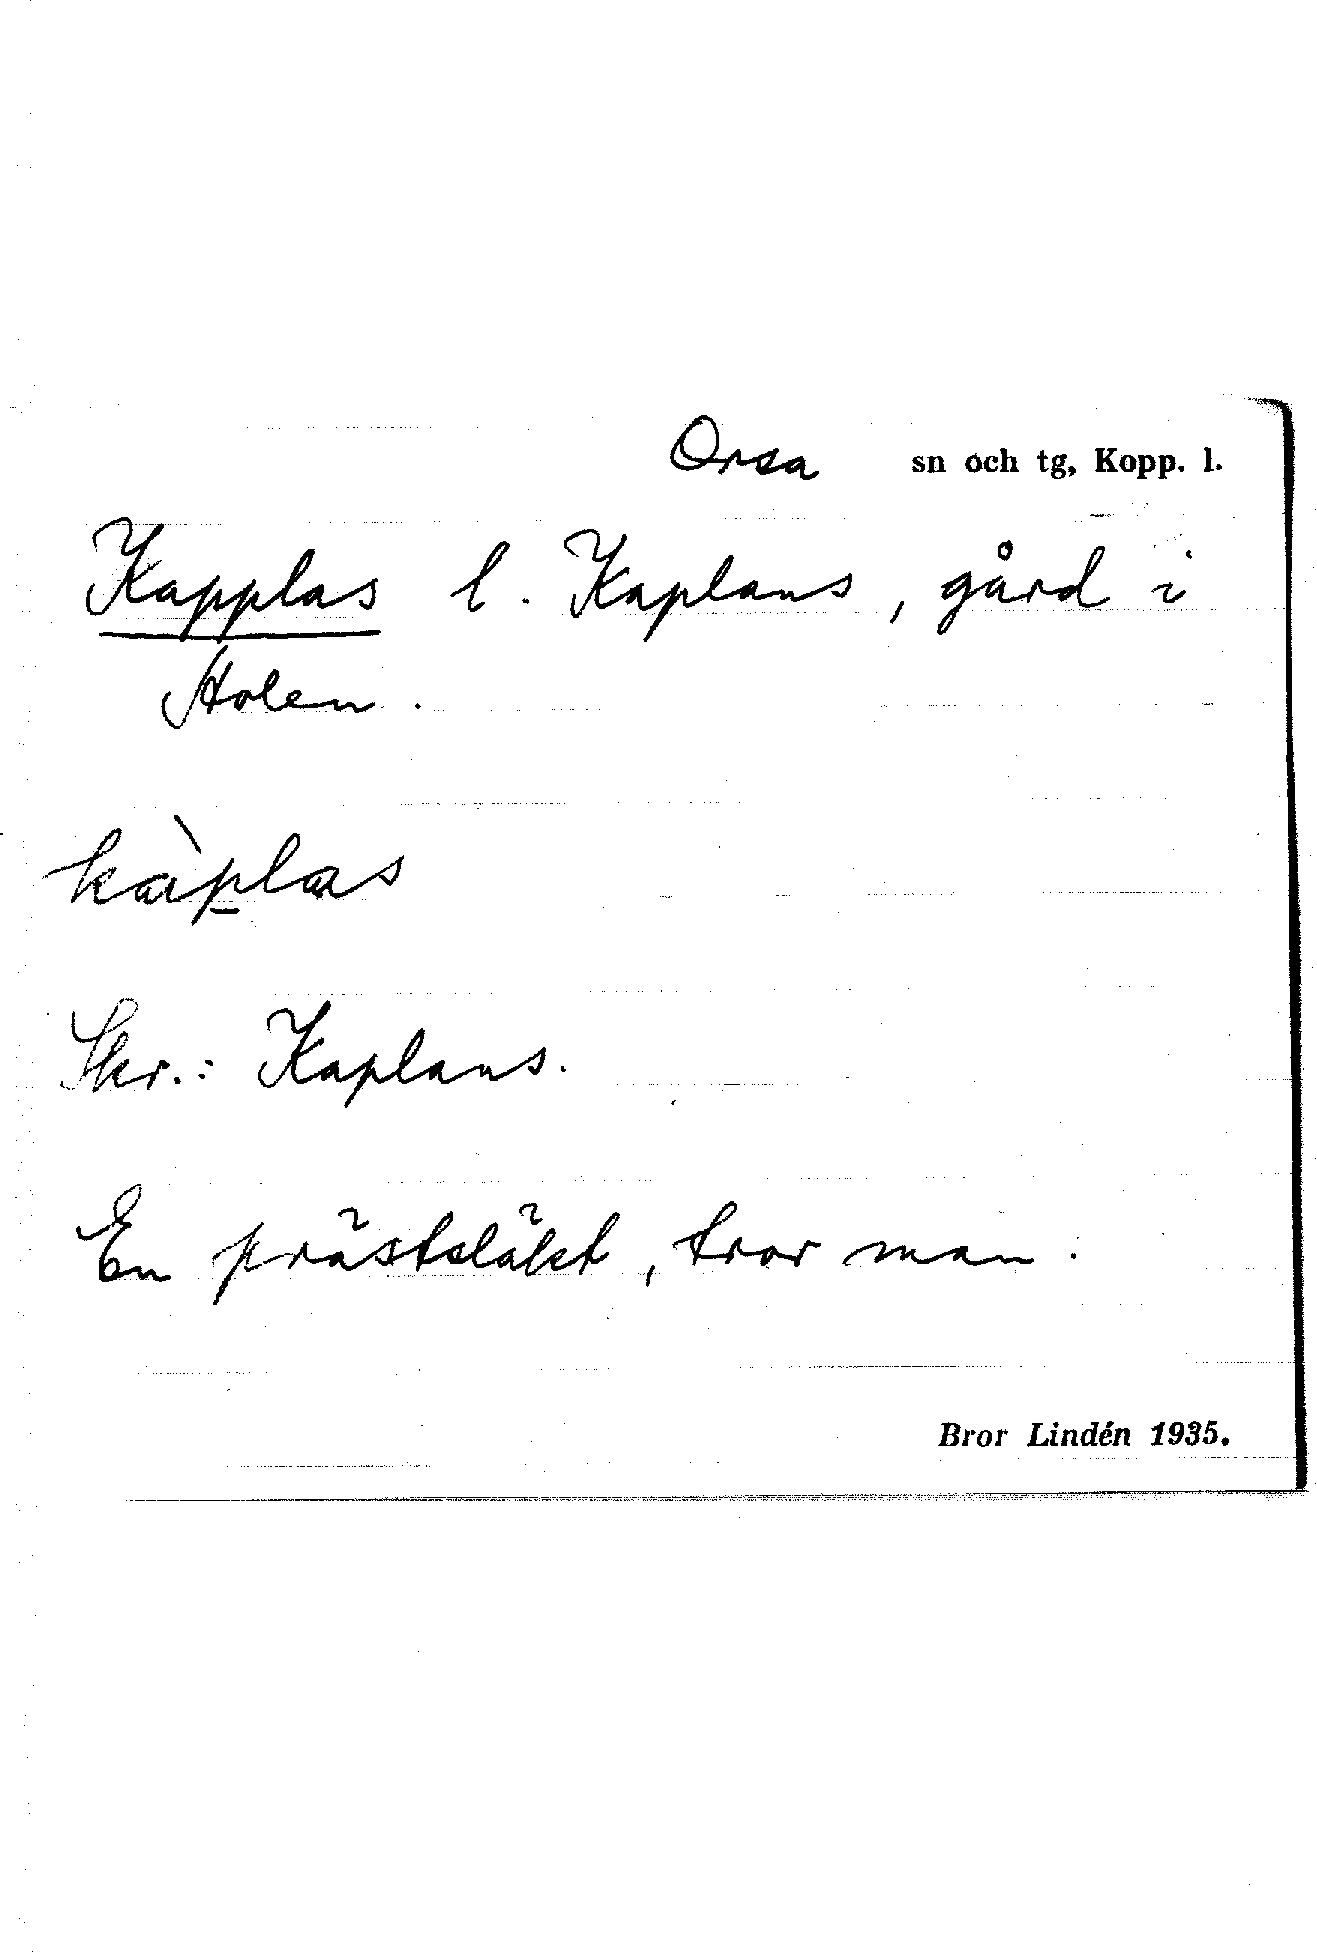 Orsa sn och tg, Kopp. l.
Kapplas l. Kaplans, gård i
Holen.
kàp̲las
Skr.: Kaplans.
En prästsläkt, tror man.
Bror Lindén 1935.